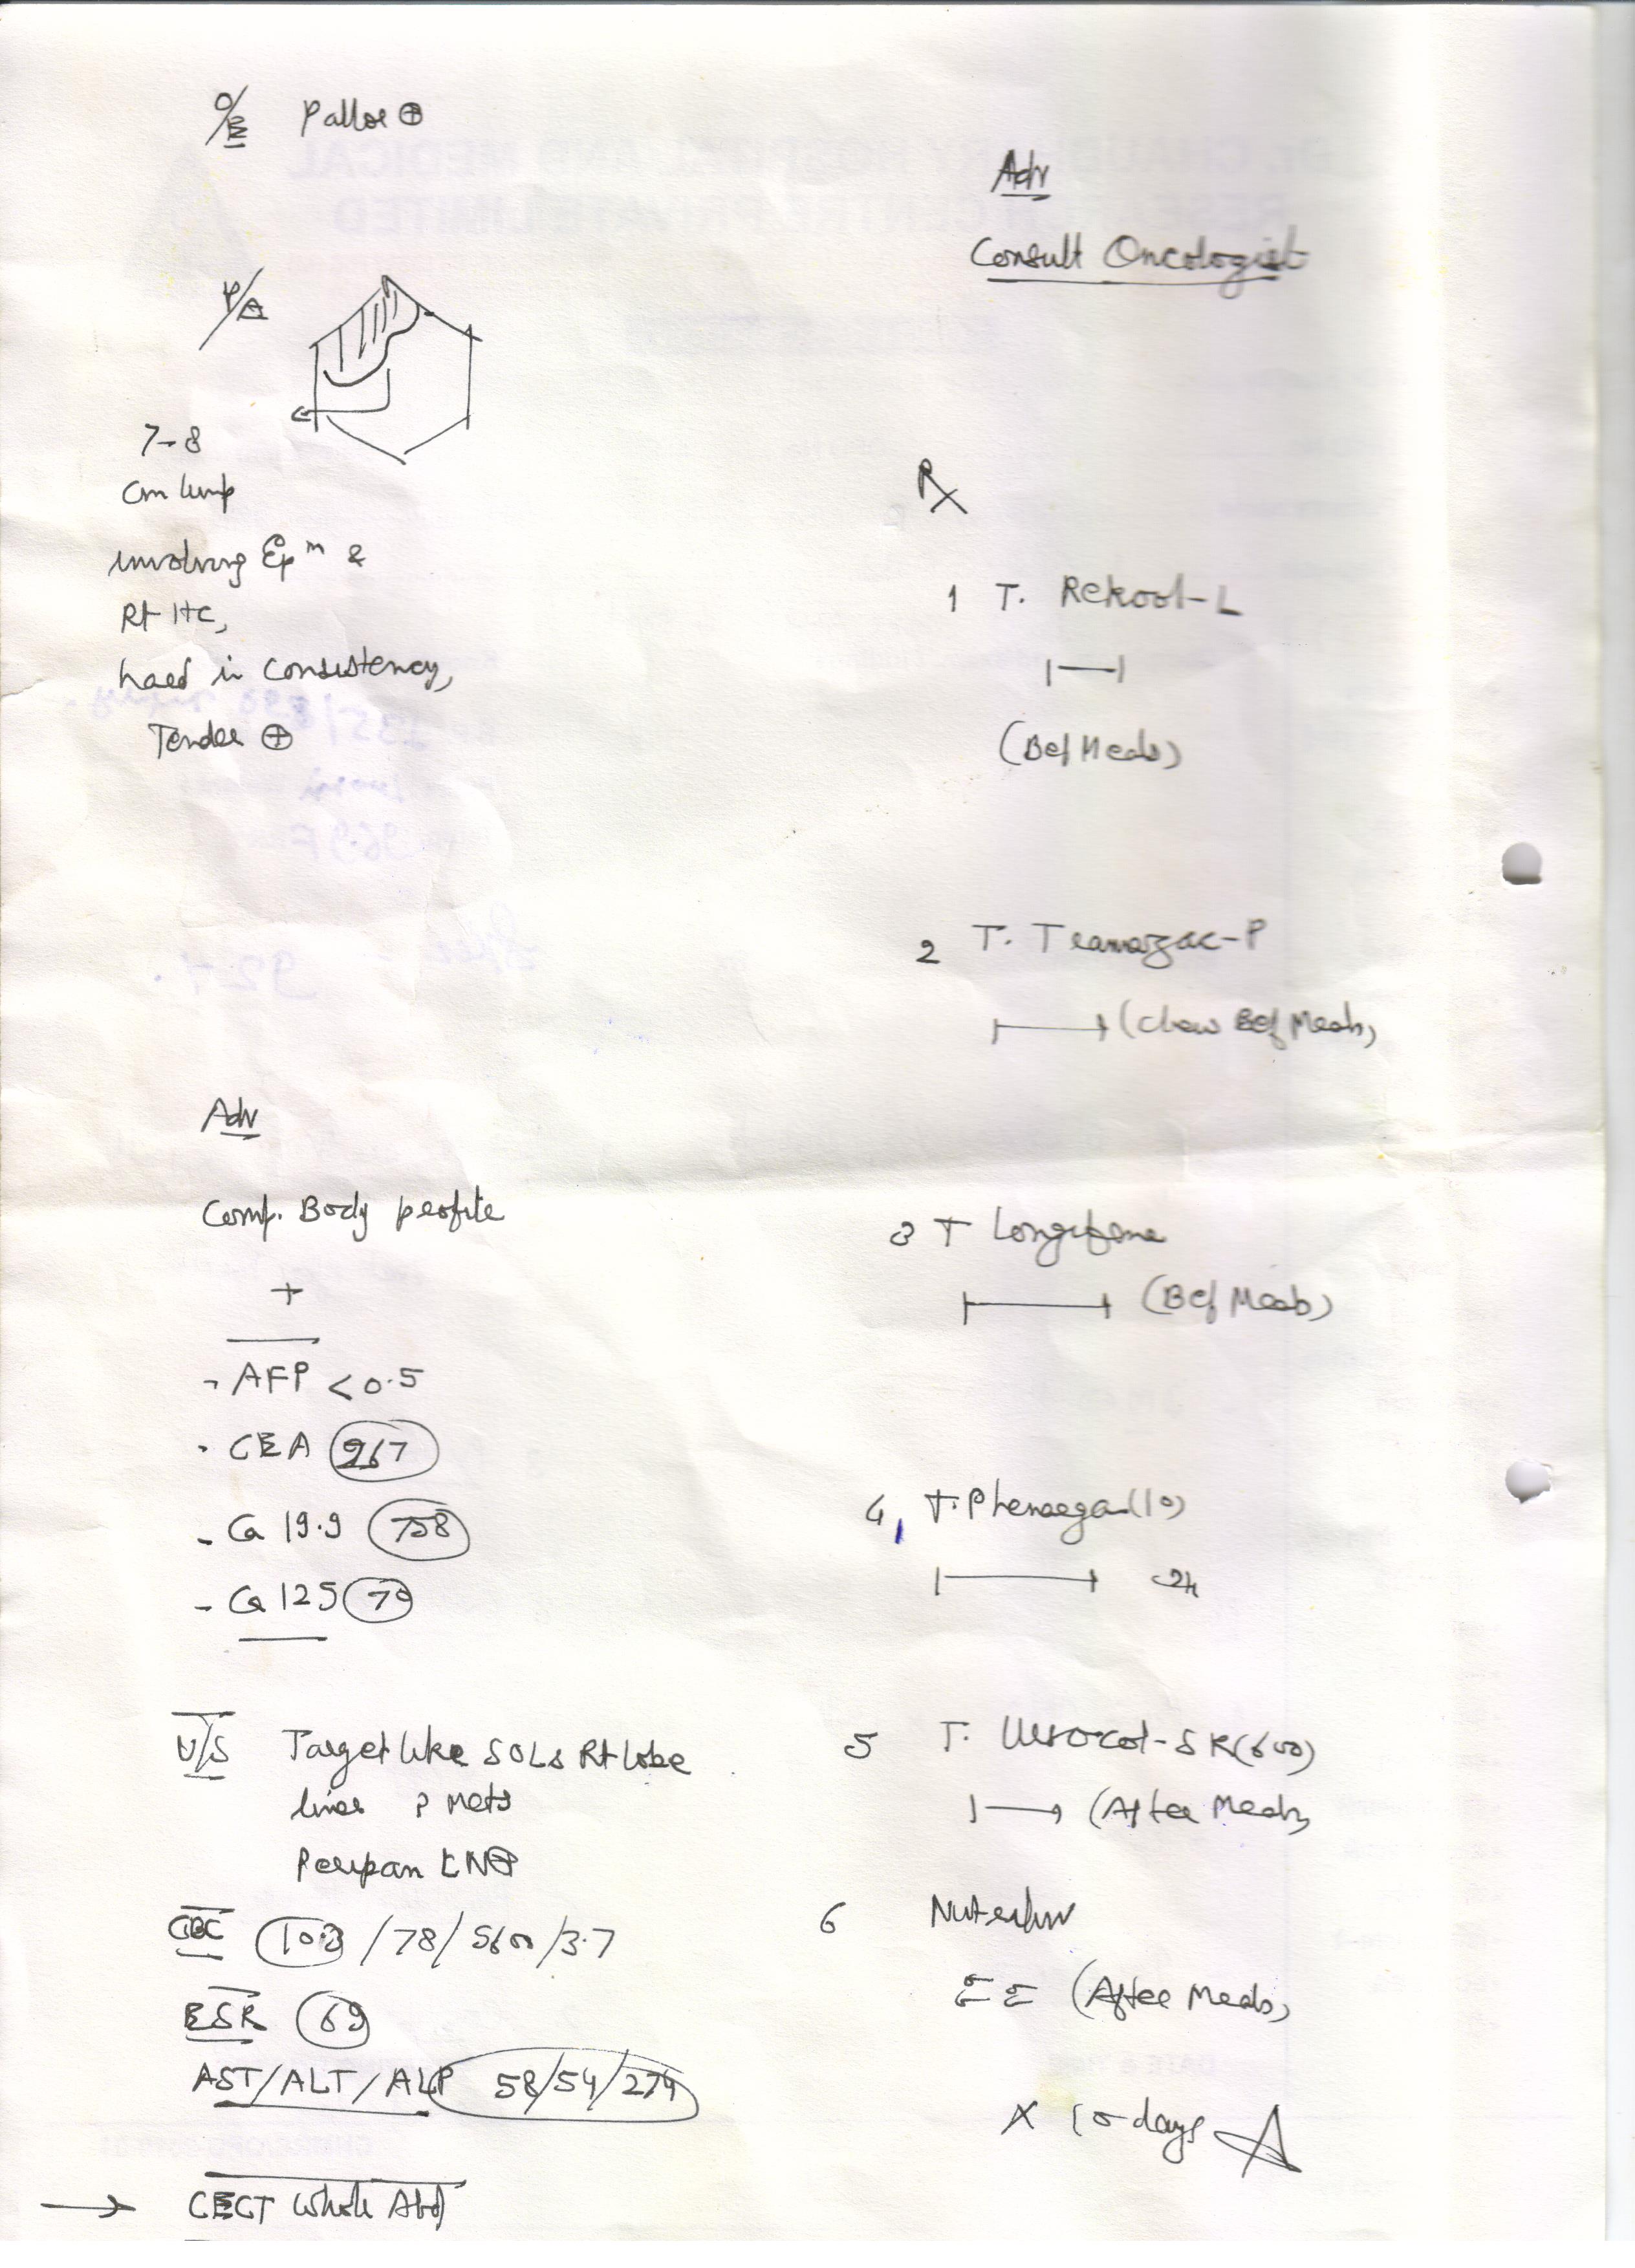 O/E Pallor ⊕
P/A
7-8
cm lump
involving Epm &
Rt HC,
hard in consistency,
Tender ⊕
Adv
Comp. Body profile
+
- AFP <0.5
- CEA 967
- Ca 19.9 758
- Ca 125 79
U/S Target like SOLs Rt lobe
liver ? Mets
Peripan LN⊕
CBC /78/5600/3.7
ESR 69
AST/ALT/ALP 58/54/274
→ CECT Whole Abd
Adv
Consult Oncologist
Rx
1 T. Rekool-L
(Bef Meals)
2 T. Tramazac-P
(Chew Bef Meals)
3 T Longifene
(Bef Meals)
4, T. Phenergan (10)
5 T. Ursocol-SR(600)
(After Meals)
6
(After Meals)
X 10 days